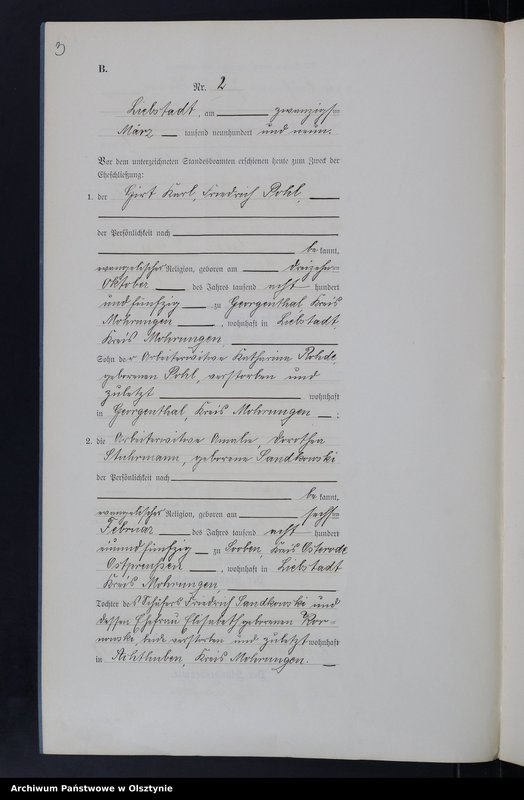 3
B.
Nr. 2
Liebstadt, am zwanzigsten
März tausend neunhundert und neun.
Vor dem unterzeichneten Standesbeamten erschienen heute zum Zweck der
Eheschließung:
1. der Hirt Karl, Friedrich Pohl,
der Persönlichkeit nach
be kannt,
evangelischer Religion, geboren am dreizehnten
Oktober des Jahres tausend acht hundert
und fünfzig zu Georgenthal Kreis
Mohrungen, wohnhaft in Liebstadt
Kreis Mohrungen
Sohn der Arbeiterwitwe Katharine Rohde,
geborenen Pohl, verstorben und
zuletzt wohnhaft
in Georgenthal, Kreis Mohrungen;
2. die Arbeiterwitwe Amalie, Dorothea
Stuhrmann, geborene Sandkowski
der Persönlichkeit nach
be kannt,
evangelischer Religion, geboren am sechsten
Februar des Jahres tausend acht hundert
neunundfünfzig zu Kreis Osterode
Ostpreußen, wohnhaft in Liebstadt
Kreis Mohrungen,
Tochter des Schäfers Friedrich Sandkowski und
dessen Ehefrau Elisabeth geborenen
beide verstorben und zuletzt wohnhaft
in Achthuben, Kreis Mohrungen.
Archiwum Państwowe w Olsztynie